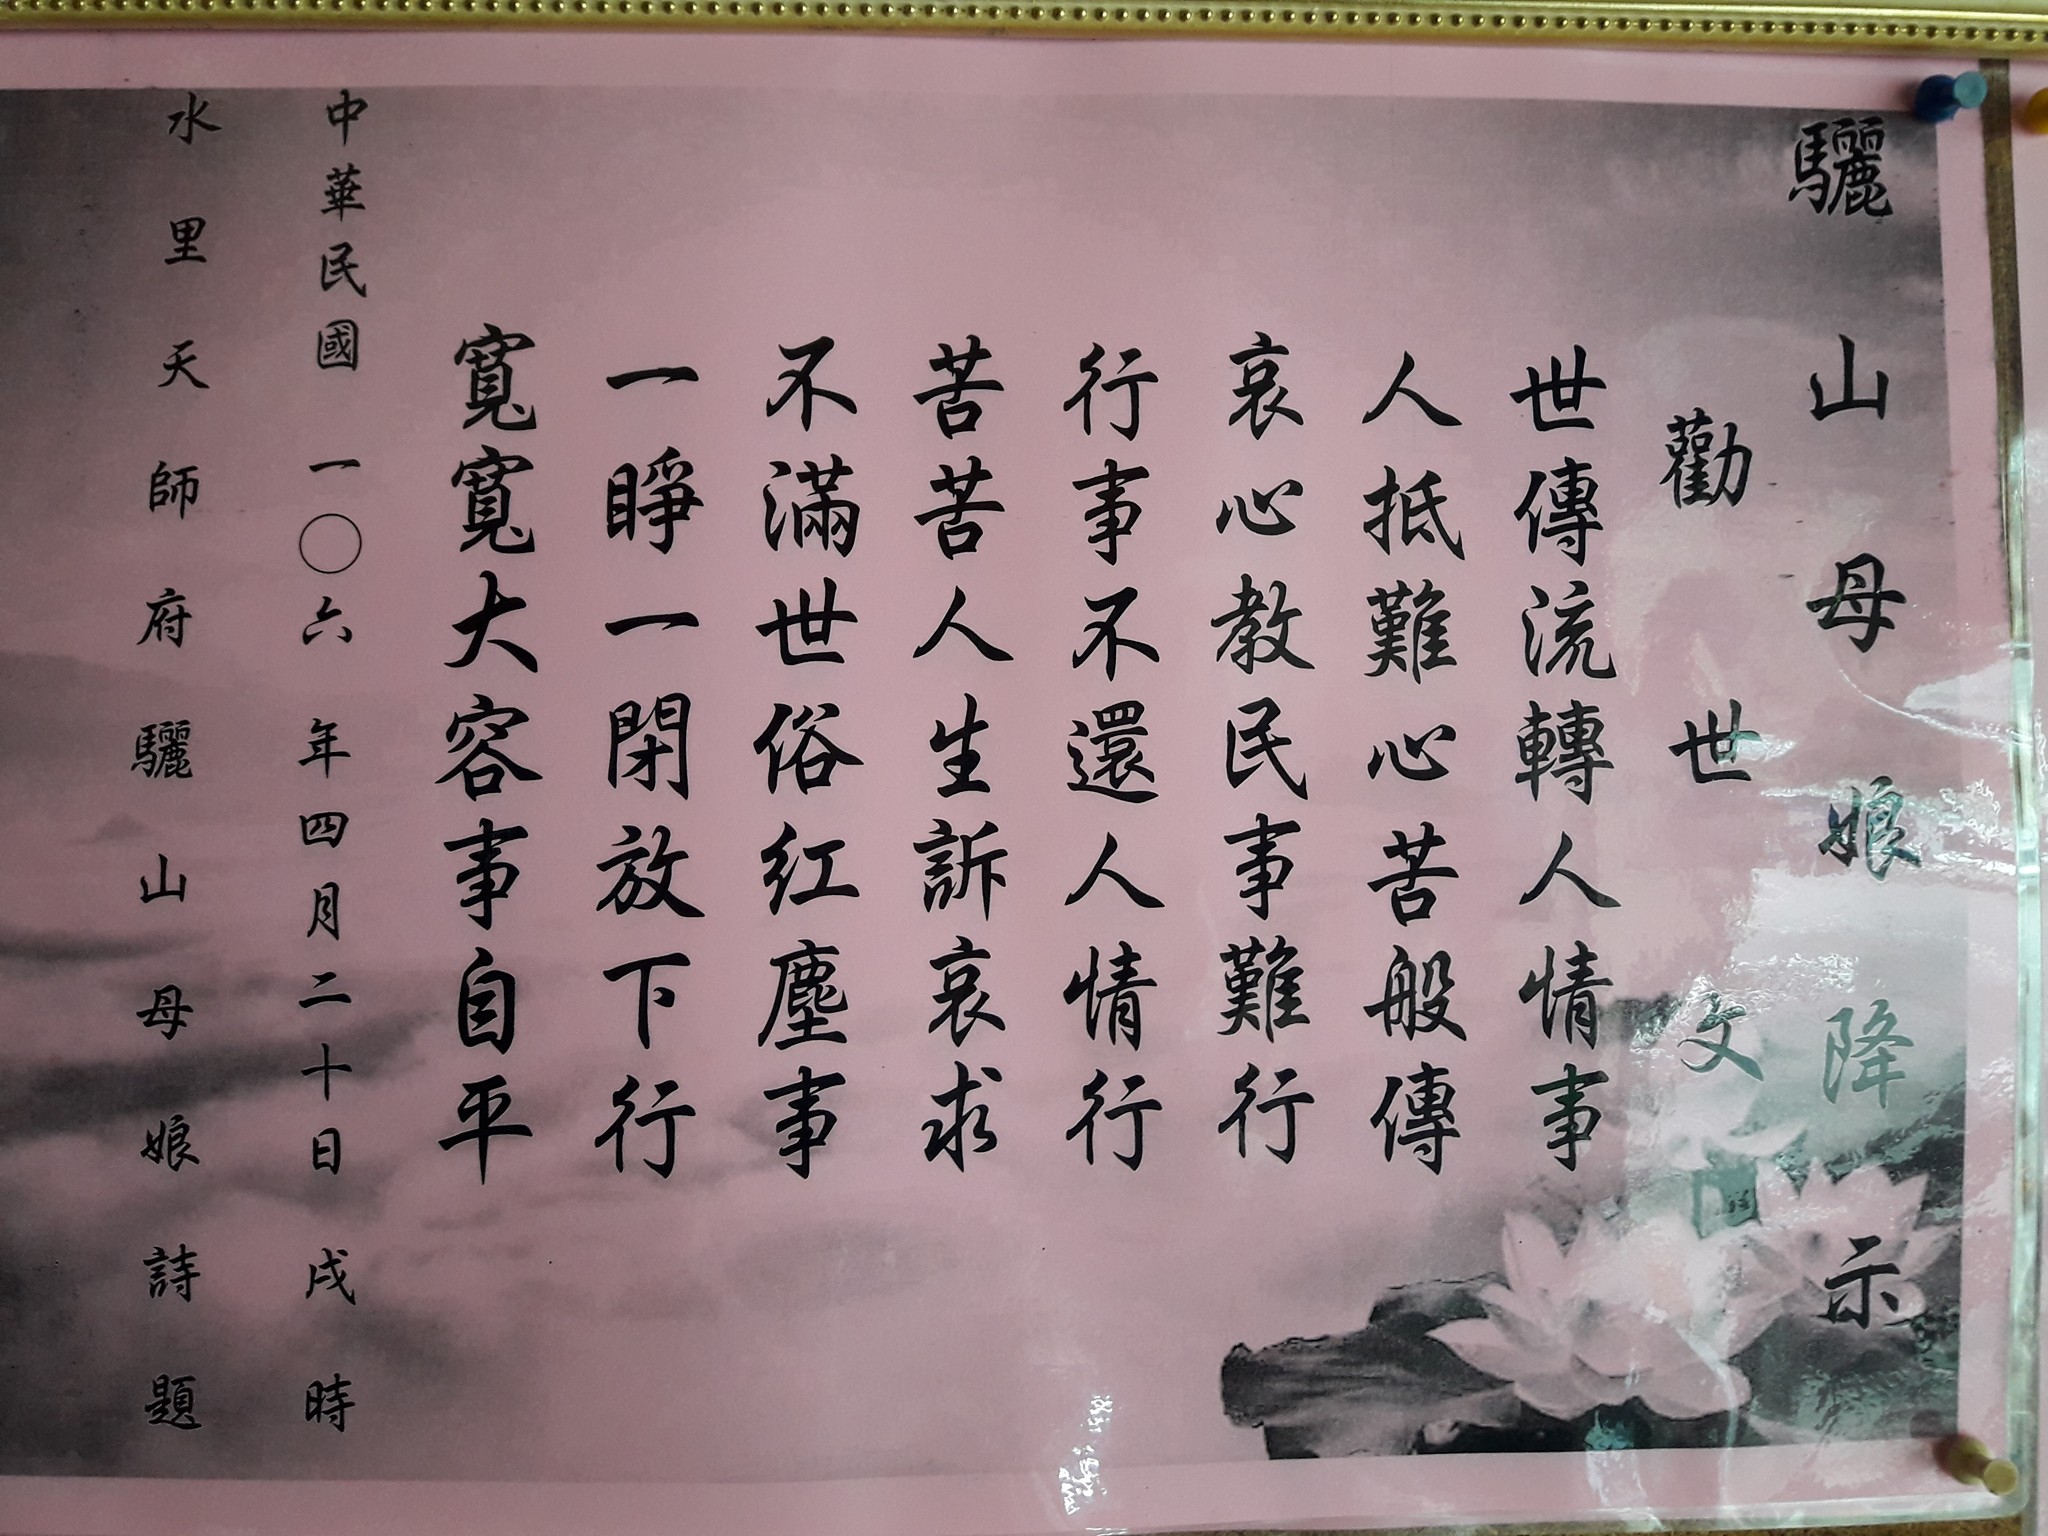 驪山母娘降示
勸世文
世傳流轉人情事
人抵難心苦般傳
哀心教民事難行
行事不還人情行
苦苦人生訴哀求
不滿世俗紅塵事
一睜一閉放下行
寬寬大容事自平
中華民國一〇六年四月二十日戌時
水里天師府驪山母娘詩題